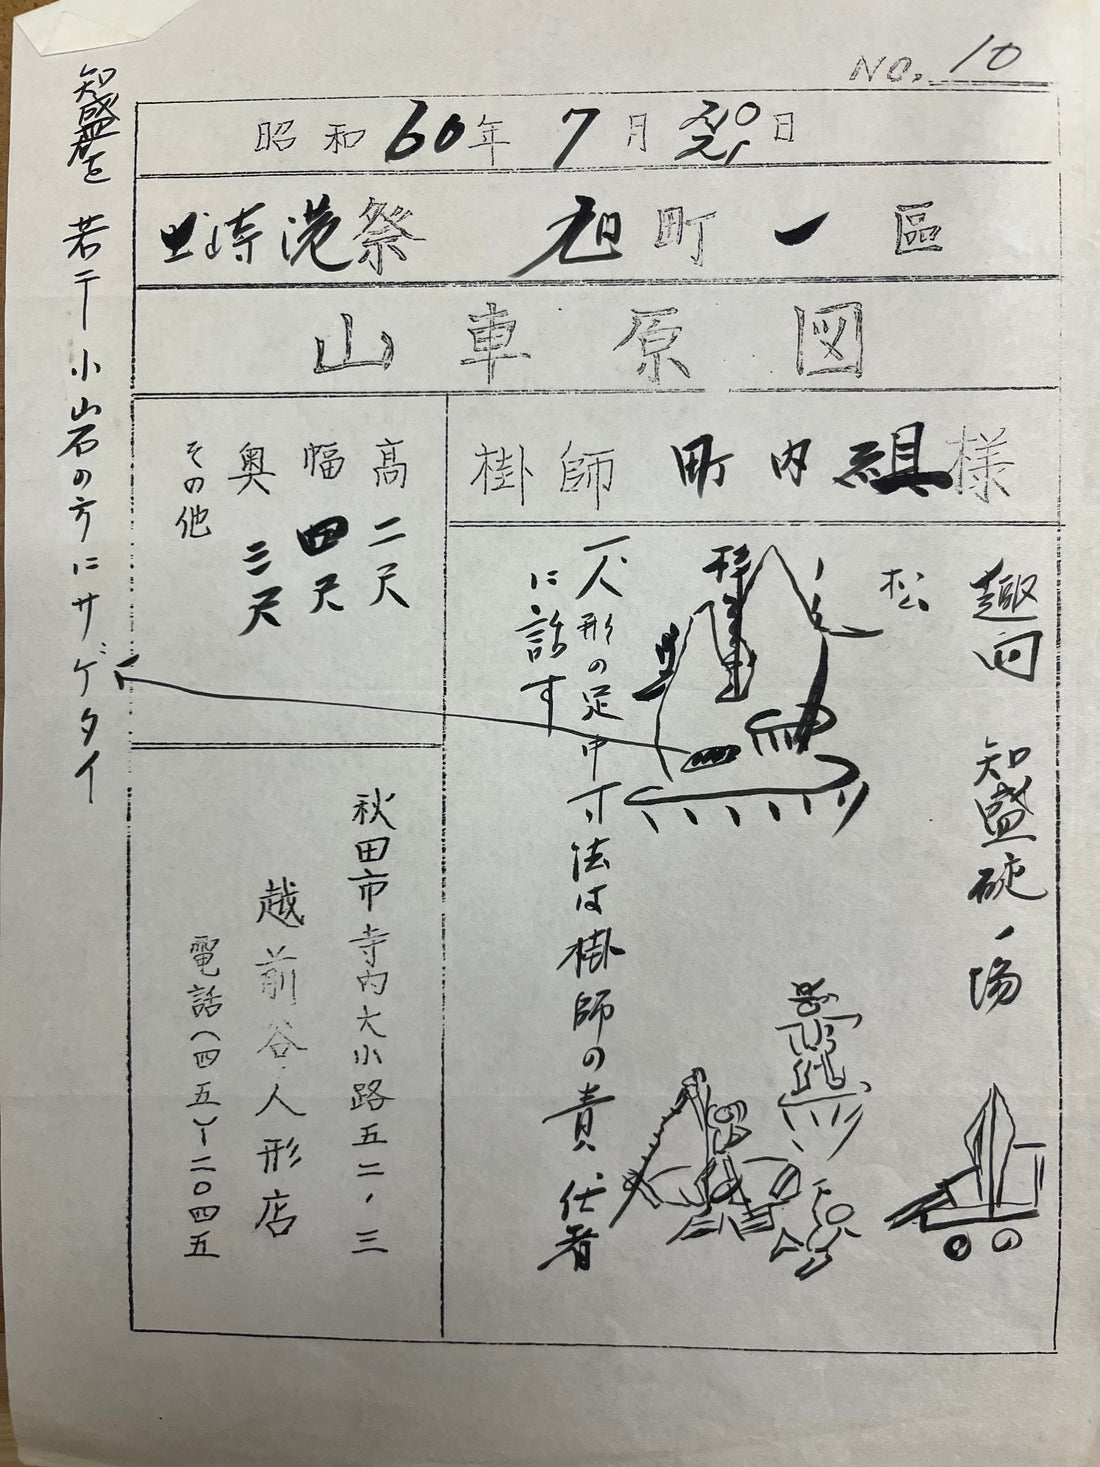 NO. 10
昭和60年 7月20日
21
土崎港祭 旭町一區
山車原図
掛師 町内組様
趣向 知盛碇ノ場
松
人形の足中寸法は掛師の責任者
に話す
高 二尺
幅 四尺
奥 三尺
その他
秋田市寺内大小路五二ノ三
越前谷人形店
電話(四五)ー二〇四五
知盛を 若干小岩の方にサゲタイ